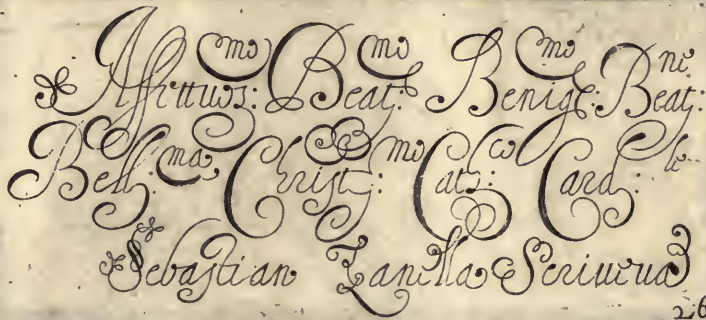 Affettuos:mo Beat:mo Benig:mo Beat:ne
Bell:ma Christ:mo Cat:co Card:le
Sebastian Zanella Scriueua
26